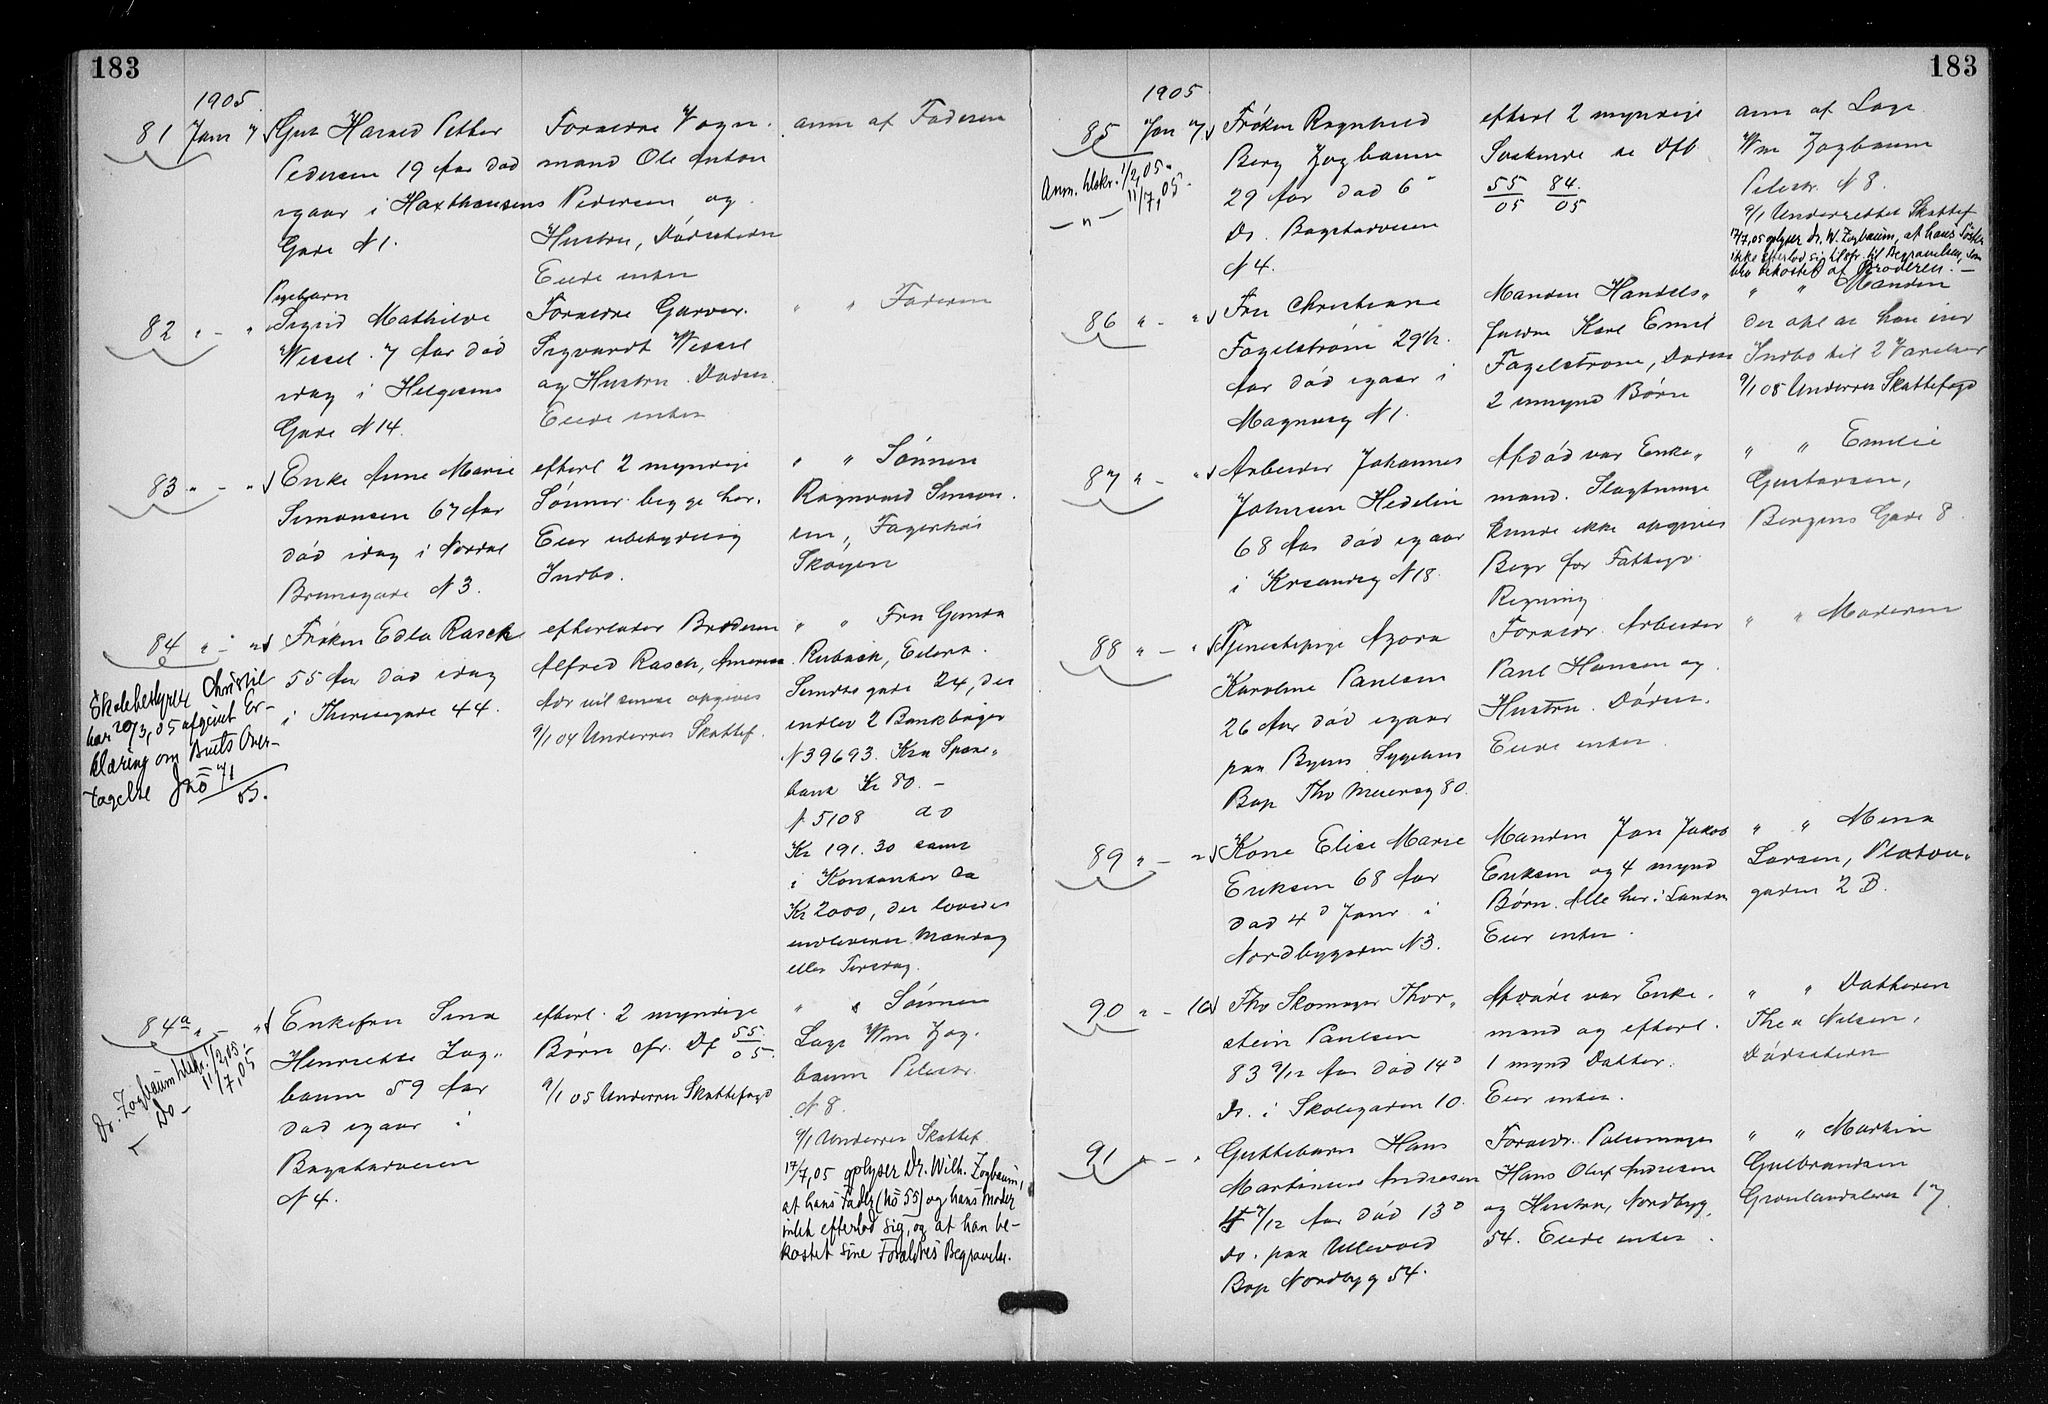 183
1905
81 Janr 7 Gut Harald Petter
Pedersen 19 Aar død
igaar i Haxthausens
Gade N 1.
Forældre Vogn-
mand Ole Anton
Pedersen og
Hustru, Dødsstedn
Eiede intet
anm af Faderen
82 " - " Pigebarn
Sigrid Mathilde
Wessel. 7 Aar død
idag i Helgesens
Gade N 14.
Forældre Garver.
Sigvardt Wessel
og Hustru. Dødsst.
Eiede intet
" " Faderen
83 " - " Enke Anne Marie
Simonsen 67 Aar
død idag i Nordal
Brunsgade N 3.
efterl 2 myndige
Sønner begge her.
Eier ubetydelig
Indbo.
" " Sønnen
Ragnvald Simon-
sen, Fagerhøi
Skøyen
84 " - " Frøken Edla Rasch
55 Aar død idag
i Theresegade 44.
efterlader Broderen
Alfred Rasch, Amerika
Adr vil senere opgives
9/1 04 Underr Skattef.
" " Fru Gunda
Rubach, Eilert
Sundts gade 24, der
indlev 2 Bankbøger
N 39693. Kra Spare-
bank Kr 80. -
N 5108 do
Kr 191.30 samt
i Kontanter ca
Kr 2000, der lovedes
indleveret Mandag
eller Tirsdag.
Skolebestyrer
har 20/3,05 afgivet Er-
klæring om Boets Over-
tagelse Jno 71/05.
84a " - " Enkefru Lina
Henriette Zog-
baum 59 Aar
død igaar i
Bogstadveien
N 4.
efterl. 2 myndige
Børn cfr. Df 55/05.
9/1 05 Underr Skattefogd
" " Sønnen
Læge Wm Zog-
baum Pilestr.
N 8.
9/1 Underr Skattef
17/7,05 oplyser Dr. Wilh. Zogbaum,
at hans Fader (No 55) og hans Moder
intet efterlod sig, og at han be-
kostet sine Forældres Begravelse.
Dr. Zogbaum tilskr. 1/2,05.
- Do - 11/7,05
183
1905
85 Jan 7 Frøken Ragnhild
Berg Zogbaum
29 Aar død 6'
Ds. Bogstadveien
N 4.
efterl 2 myndige
Søskende se Dfb
55/05 84/05
anm af Læge
Wm Zogbaum
Pilestr. N 8.
9/1 Underrettet Skattef
17/7,05 oplyser Dr. W. Zogbaum, at hans Søster
ikke efterlod sig til Begravelsen, som
blev bekostet af Broderen. -
Anm. tilskr. 1/2,05.
- " - 11/7,05.
86 " - " Fru Christiane
Fagelstrøm 29½
Aar død igaar i
Magnusg N 1.
Manden Handels-
Karl Emil
Fagelstrøm, Dødsst
2 umynd Børn
" " Manden
der opl at han eier
Indbo til 2 Værelser
9/1 05 Underret Skattefogd
87 " - " Arbeider Johannes
Johnsen Hedelin
68 Aar død igaar
i Krsandsg N 18.
Afdød var Enke-
mand. Slægtninge
kunde ikke opgives
Begr for Fattigv
Regning
" " Emilie
Gustavsen,
Bergens Gade 8
88 " - " Tjenestepige Azora
Karoline Paulsen
26 Aar død igaar
paa Byens Sygehus
Bop Thv Meiersg 80.
Forældr. Arbeider
Paul Hansen og
Hustru. Dødsst.
Eiede intet
" " Moderen
89 " - " Kone Elise Marie
Eriksen 68 Aar
død 4d Janr i
Nordbygaden N 3.
Manden Jan Jakob
Eriksen og 4 mynd
Børn. Alle her i Landet
Eier intet.
" " Mina
Larsen, Platou-
gaden 2 B.
90 " - 16 Fhv Skomager Thor-
stein Paulsen
83 9/12 Aar død 14d
Ds. i Skolegaden 10.
Afdøde var Enke-
mand og efterl.
1 mynd Datter.
Eier intet.
" " Datteren
Thea Nilsen,
Dødsstedn
91 " - " Guttebarn Hans
Martinius Andresen
7/12 Aar død 13d
Ds. paa Ullevold
Bop Nordbyg 54.
Forældr. Pølsemager
Hans Oluf Andresen
og Hustru, Nordbyg.
54. Eiede intet.
" " Martin
Gulbrandsen
Grønlandsleret 17